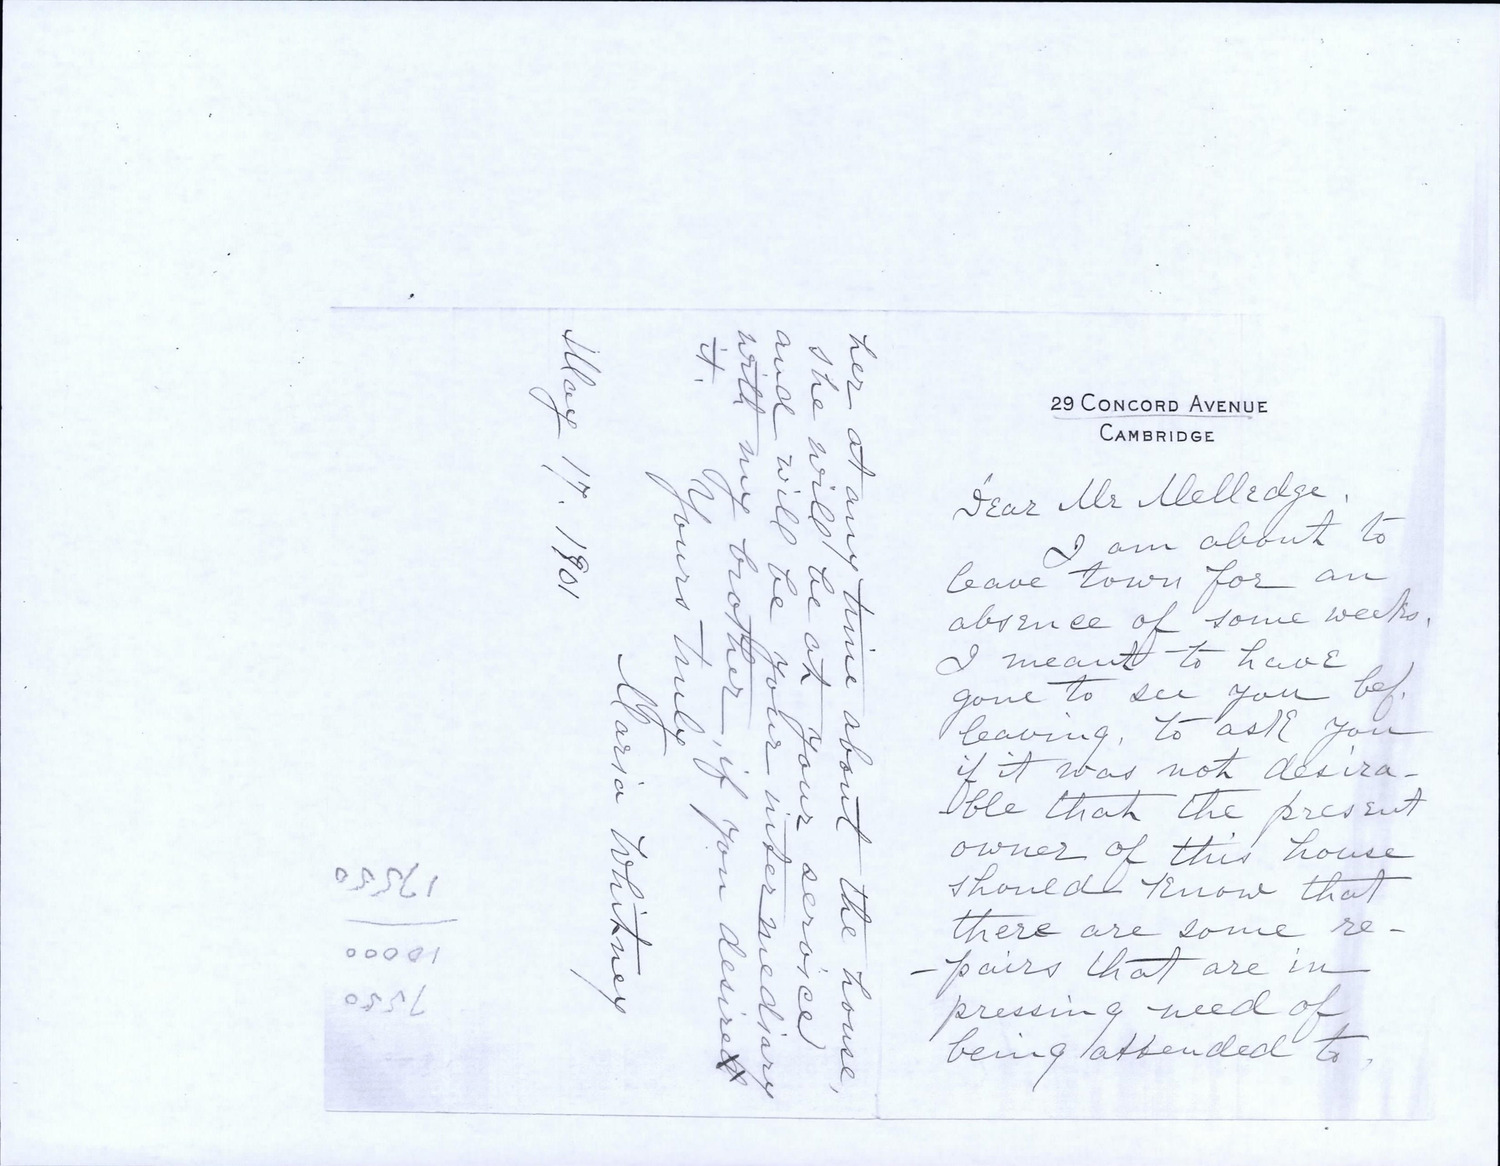 29 CONCORD AVENUE
CAMBRIDGE
Dear Mr Melledge.
I am about to
leave town for an
absence of some weeks.
I meant to have
gone to see you bef.
leaving, to ask you
if it was not desira-
ble that the present
owner of this house
should know that
there are some re-
-pairs that are in
pressing need of
being attended to.
her at any time about the house,
she will be at your service
and will be your intermediary
with my brother, if you desire
it.
Yours truly
Maria Whitney
May 17. 1901
7550
10000
17550